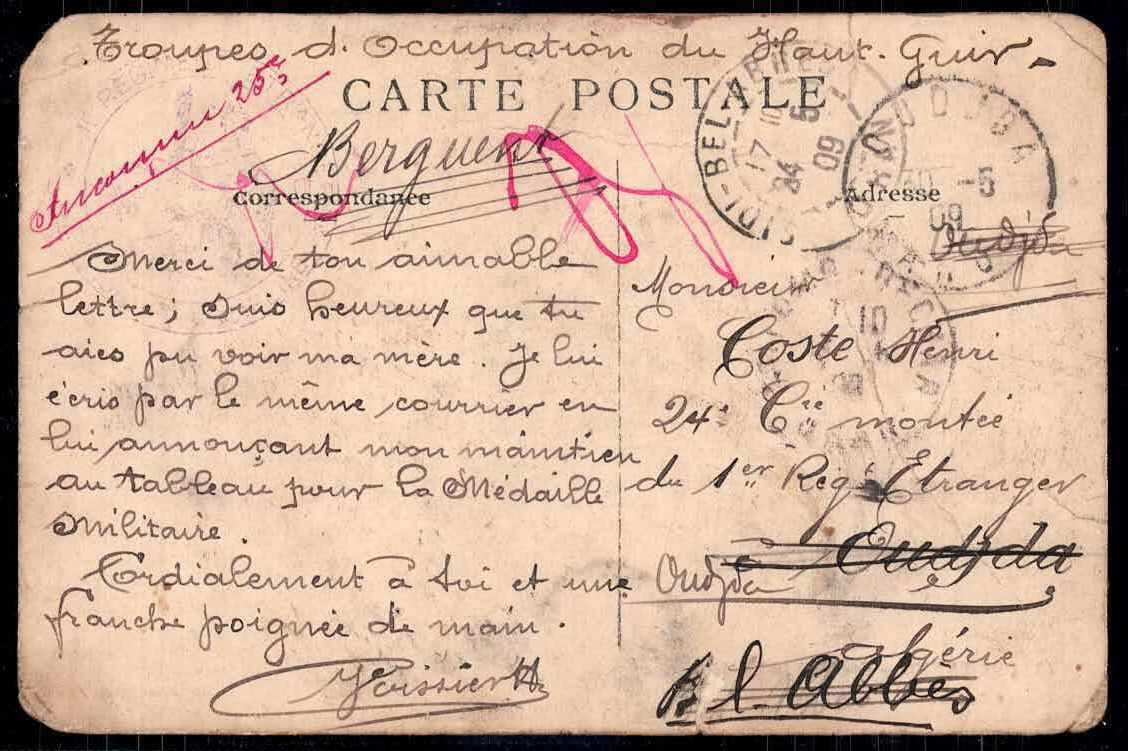 Troupes d. Occupation du Haut. Guir -
CARTE POSTALE
Inconnu 25e
Berguent
Correspondance
Adresse
SIDI-BEL-ABB
17 10
24 5
09
OUDJDA
-5
09
ORAN
Oudjda
Merci de ton aimable
lettre; suis heureux que tu
aies pu voir ma mère. Je lui
écris par le même courrier en
lui annonçant mon maintien
au tableau pour la Médaille
militaire.
Cordialement à toi et une
franche poignée de main.
Monsieur
Coste Henri
24e Cie montée
du 1er Reg. Etranger
à Oudjda
Oudjda
Algérie
B l. Abbès